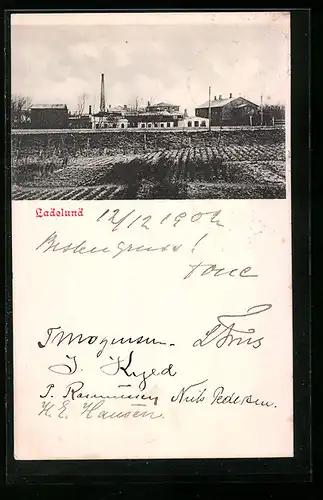 Ladelund
12/12 1902
Besten gruss!
T Mogensen.
J. Kyed
P. Rasmussen Niels Pedersen.
H. E. Hansen